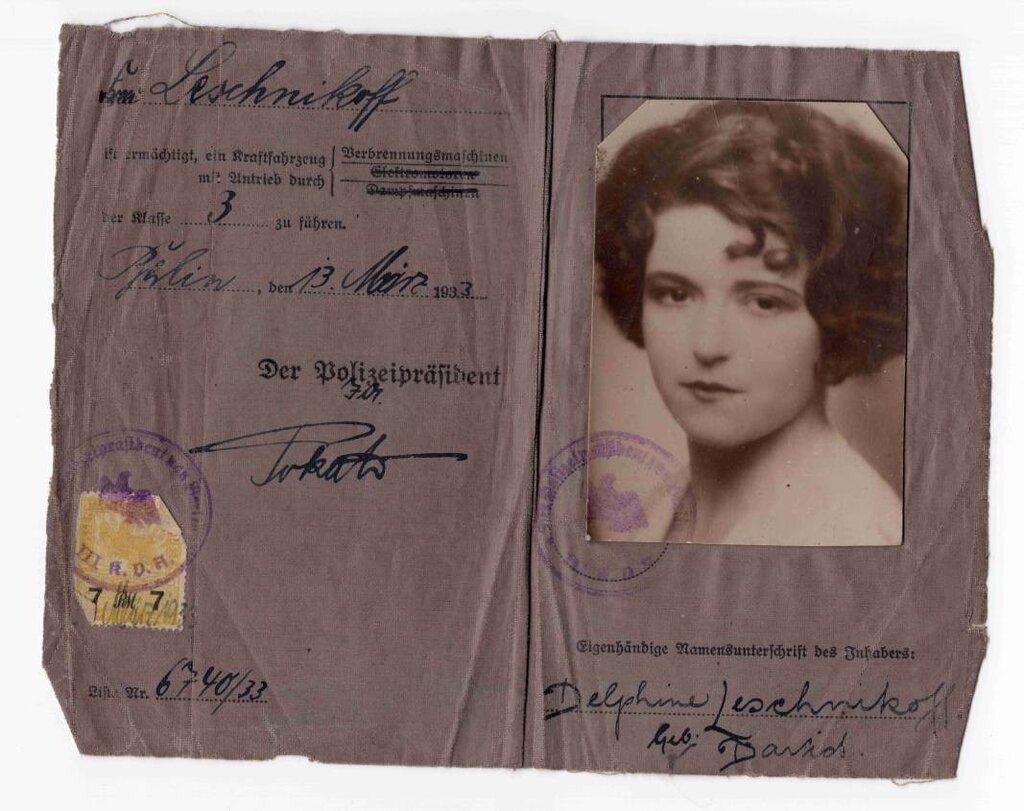 Frau Leschnikoff
ist ermächtigt, ein Kraftfahrzeug
mit Antrieb durch
Verbrennungsmaschinen
Elektromotoren
Dampfmaschinen
der Klasse 3 zu führen.
Berlin, den 13. März 1933
Der Polizeipräsident
III K.V.A.
7 7
Liste Nr. 6740/33
Eigenhändige Namensunterschrift des Inhabers:
Delphine Leschnikoff
geb. David.